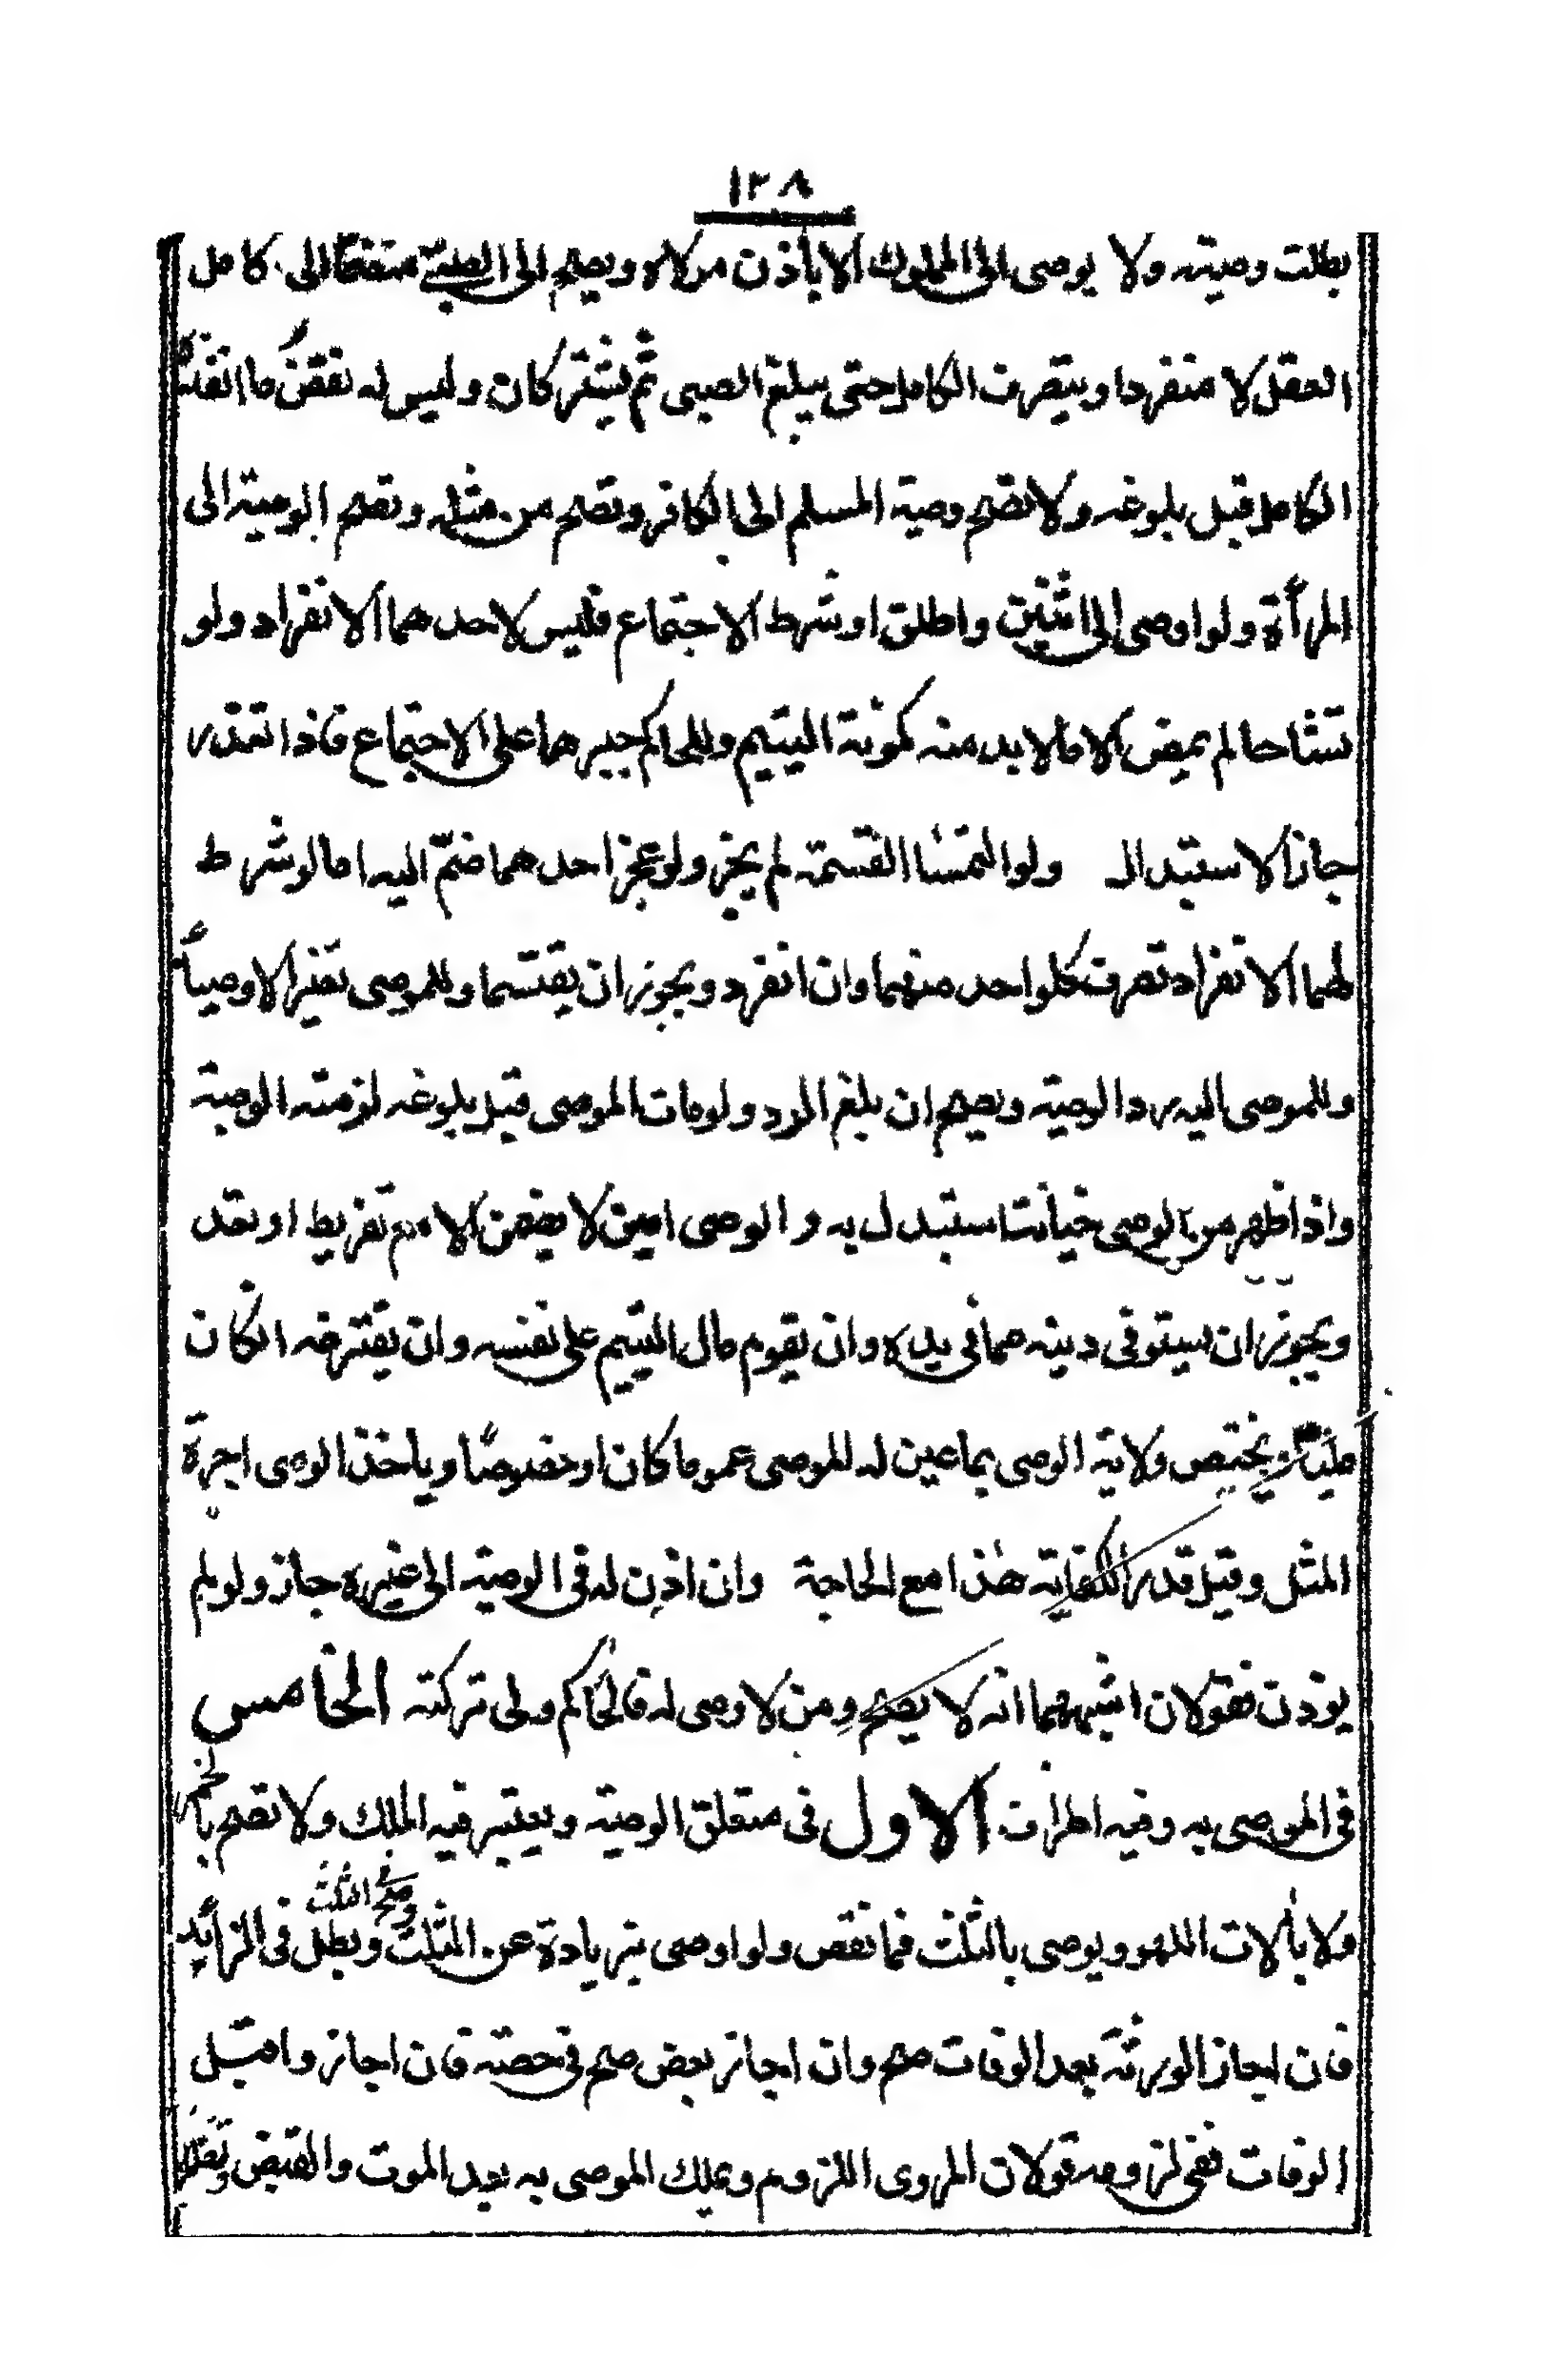 ١٢٨
بطلت وصيته ولا يوصى الى المملوك الا باذن مولاه ويصح الى الصبى منضما الى كامل
العقل لا منفردا ويتصرف الكامل حتى يبلغ الصبى ثم يشتركان وليس له نقض ما انفذه
الكامل قبل بلوغه ولا تصح وصية المسلم الى الكافر وتصح من مثله وتصح الوصية الى
المرأة ولو اوصى الى اثنين واطلق او شرط الاجتماع فليس لاحدهما الانفراد ولو
تشاحا لم يمض الا ما لا بد منه كمؤنة اليتيم وللحاكم جبرهما على الاجتماع فاذا تعذر
جاز الاستبدال ولو التمسا القسمة لم يجز ولو عجز احدهما ضم اليه اما لو شرط
لهما الانفراد تصرف كل واحد منهما وان انفرد ويجوز ان يقتسما وللموصى تغير الاوصياء
وللموصى اليه رد الوصية ويصح ان بلغ الرد ولو مات الموصى قبل بلوغه لزمته الوصية
واذا ظهر من الوصى خيانت استبدل به والوصى امين لا يضمن الا مع تفريط او تعد
ويجوز ان يستوفى دينه مما فى يده وان يقوم مال اليتيم على نفسه وان يقترضه انكان
مليا ويختص ولاية الوصى بما عين له الموصى عموما كان او خصوصا وياخذ الوصى اجرة
المثل وقيل قدر الكفاية هذا مع الحاجة وان اذن له فى الوصية الى غيره جاز ولو لم
يوذن فقولان اشبههما انه لا يصح ومن لا وصى له فالحاكم ولى تركته الخامس
فى الموصى به وفيه اطراف الاول فى متعلق الوصية ويعتبر فيه الملك ولا تصح بالخمر
ولا بآلات اللهو ويوصى بالثلث فما نقص ولو اوصى بزيادة عن الثلث وصح الثلث وبطل فى الزائد
فان اجاز الورثة بعد الوفات صح وان اجاز بعض صح فى حصته فان اجازوا قبل
الوفات ففى لزومه قولان المروى اللزوم ويملك الموصى به بعد الموت والقبض